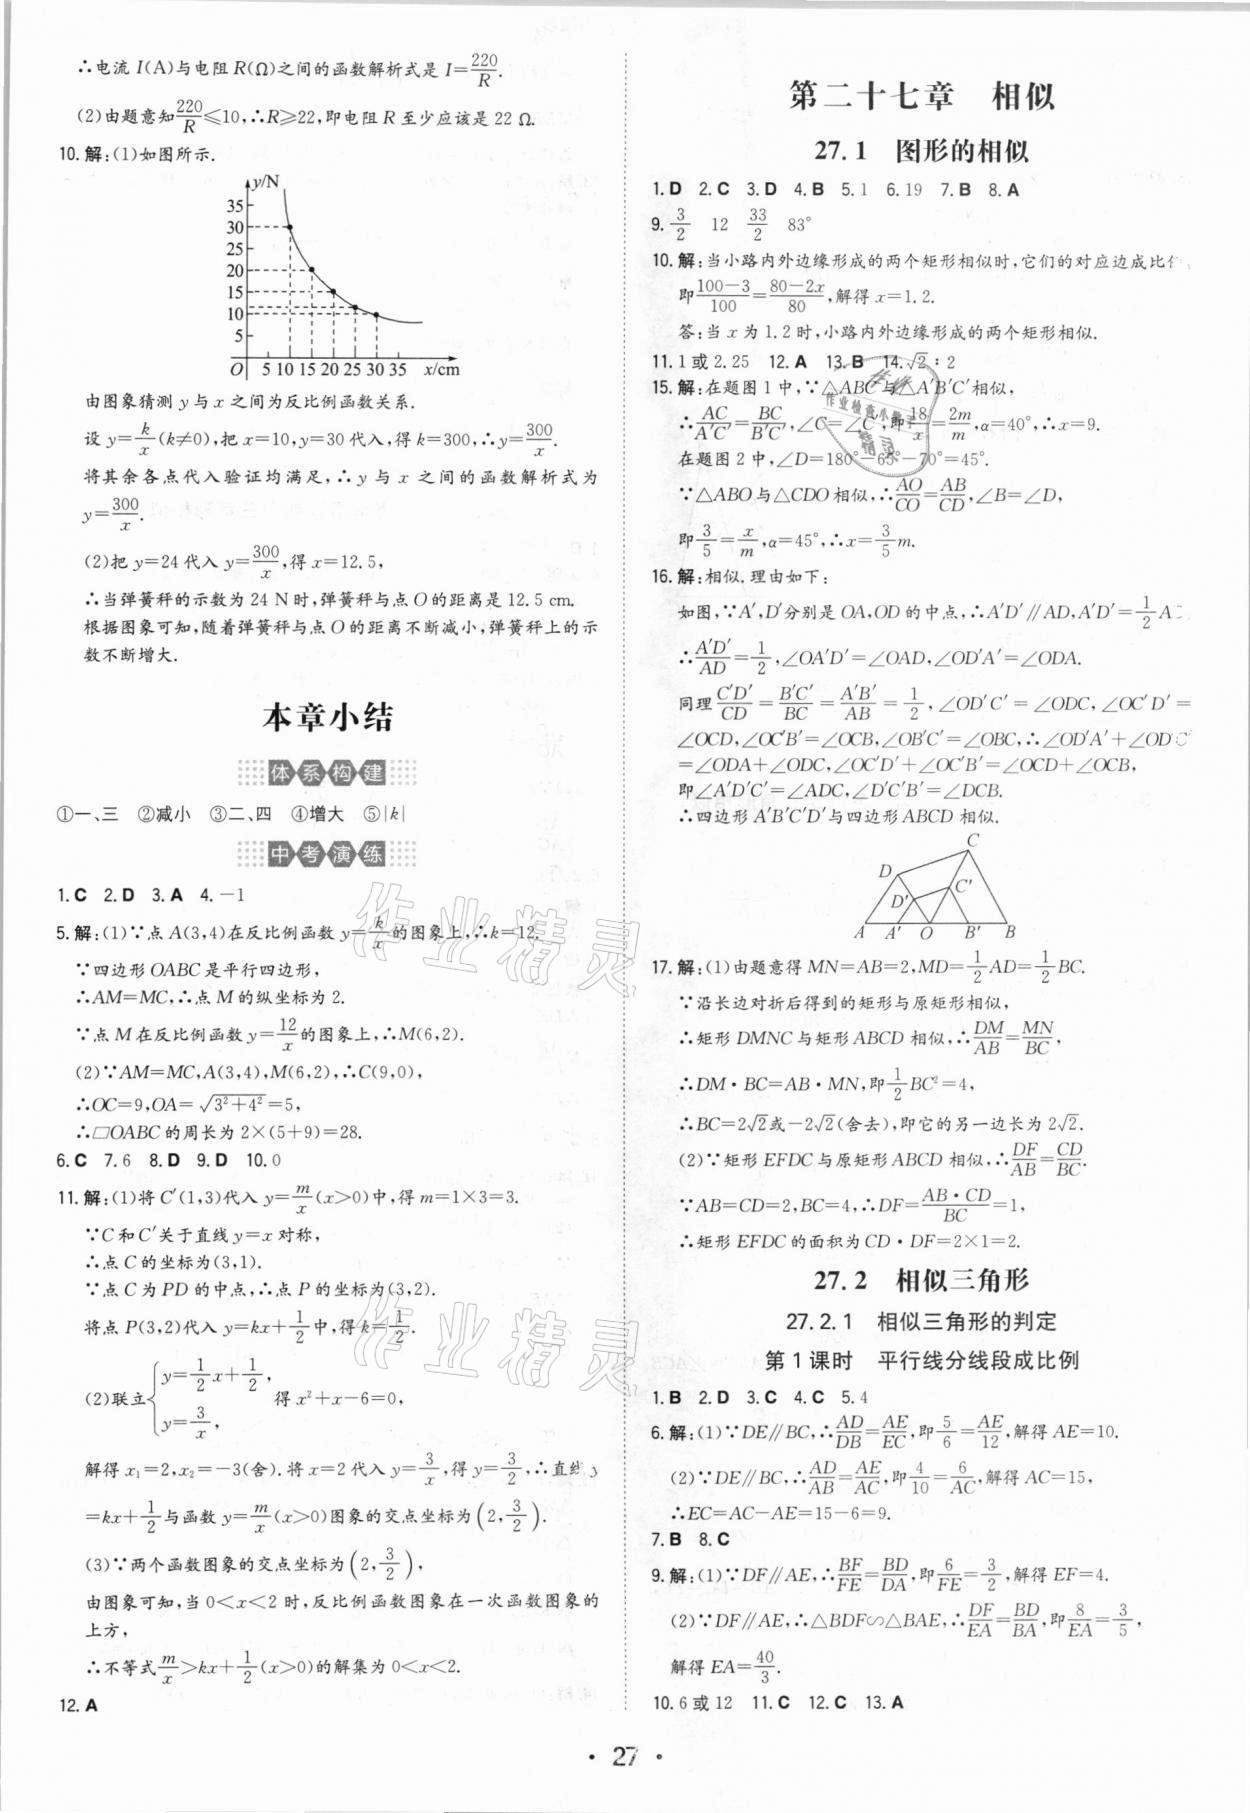 ∴电流 I(A)与电阻 R(Ω)之间的函数解析式是 I=220/R.
(2)由题意知220/R≤10,∴R≥22,即电阻 R 至少应该是 22 Ω.
10.解:(1)如图所示.
y/N
35
30
25
20
15
10
5
O 5 10 15 20 25 30 35 x/cm
由图象猜测 y 与 x 之间为反比例函数关系.
设 y=k/x(k≠0),把 x=10,y=30 代入,得 k=300,∴y=300/x.
将其余各点代入验证均满足,∴y 与 x 之间的函数解析式为
y=300/x.
(2)把 y=24 代入 y=300/x,得 x=12.5,
∴当弹簧秤的示数为 24 N 时,弹簧秤与点 O 的距离是 12.5 cm.
根据图象可知,随着弹簧秤与点 O 的距离不断减小,弹簧秤上的示
数不断增大.
本章小结
体系构建
①一、三 ②减小 ③二、四 ④增大 ⑤|k|
中考演练
1.C 2.D 3.A 4.-1
5.解:(1)∵点 A(3,4)在反比例函数 y=k/x的图象上,∴k=12.
∵四边形 OABC 是平行四边形,
∴AM=MC,∴点 M 的纵坐标为 2.
∵点 M 在反比例函数 y=12/x的图象上,∴M(6,2).
(2)∵AM=MC,A(3,4),M(6,2),∴C(9,0),
∴OC=9,OA=√(3²+4²)=5,
∴□OABC 的周长为 2×(5+9)=28.
6.C 7.6 8.D 9.D 10.0
11.解:(1)将 C′(1,3)代入 y=m/x(x>0)中,得 m=1×3=3.
∵C 和 C′关于直线 y=x 对称,
∴点 C 的坐标为(3,1).
∵点 C 为 PD 的中点,∴点 P 的坐标为(3,2).
将点 P(3,2)代入 y=kx+1/2中,得 k=1/2.
(2)联立{y=1/2x+1/2, y=3/x, 得 x²+x-6=0,
解得 x₁=2,x₂=-3(舍).将 x=2 代入 y=3/x,得 y=3/2,∴直线 y
=kx+1/2与函数 y=m/x(x>0)图象的交点坐标为(2,3/2).
(3)∵两个函数图象的交点坐标为(2,3/2),
由图象可知,当 0<x<2 时,反比例函数图象在一次函数图象的
上方,
∴不等式m/x>kx+1/2(x>0)的解集为 0<x<2.
12.A
第二十七章 相似
27.1 图形的相似
1.D 2.C 3.D 4.B 5.1 6.19 7.B 8.A
9. 3/2 12 33/2 83°
10.解:当小路内外边缘形成的两个矩形相似时,它们的对应边成比
即(100-3)/100=(80-2x)/80,解得 x=1.2.
答:当 x 为 1.2 时,小路内外边缘形成的两个矩形相似.
11.1 或 2.25 12.A 13.B 14.√2∶2
15.解:在题图 1 中,∵△ABC 与△A′B′C′相似,
∴AC/A′C′=BC/B′C′,∠C=∠C′,即18/x=2m/m,α=40°,∴x=9.
在题图 2 中,∠D=180°-65°-70°=45°.
∵△ABO 与△CDO 相似,∴AO/CO=AB/CD,∠B=∠D,
即3/5=x/m,α=45°,∴x=3/5m.
16.解:相似.理由如下:
如图,∵A′,D′分别是 OA,OD 的中点,∴A′D′∥AD,A′D′=1/2A
∴A′D′/AD=1/2,∠OA′D′=∠OAD,∠OD′A′=∠ODA.
同理C′D′/CD=B′C′/BC=A′B′/AB=1/2,∠OD′C′=∠ODC,∠OC′D′=
∠OCD,∠OC′B′=∠OCB,∠OB′C′=∠OBC,∴∠OD′A′+∠OD′C′
=∠ODA+∠ODC,∠OC′D′+∠OC′B′=∠OCD+∠OCB,
即∠A′D′C′=∠ADC,∠D′C′B′=∠DCB.
∴四边形 A′B′C′D′与四边形 ABCD 相似.
C
D
D′ C′
A A′ O B′ B
17.解:(1)由题意得 MN=AB=2,MD=1/2AD=1/2BC.
∵沿长边对折后得到的矩形与原矩形相似,
∴矩形 DMNC 与矩形 ABCD 相似,∴DM/AB=MN/BC,
∴DM·BC=AB·MN,即1/2BC²=4,
∴BC=2√2或-2√2(舍去),即它的另一边长为 2√2.
(2)∵矩形 EFDC 与原矩形 ABCD 相似,∴DF/AB=CD/BC.
∵AB=CD=2,BC=4,∴DF=AB·CD/BC=1,
∴矩形 EFDC 的面积为 CD·DF=2×1=2.
27.2 相似三角形
27.2.1 相似三角形的判定
第 1 课时 平行线分线段成比例
1.B 2.D 3.C 4.C 5.4
6.解:(1)∵DE∥BC,∴AD/DB=AE/EC,即5/6=AE/12,解得 AE=10.
(2)∵DE∥BC,∴AD/AB=AE/AC,即4/10=6/AC,解得 AC=15,
∴EC=AC-AE=15-6=9.
7.B 8.C
9.解:(1)∵DF∥AE,∴BF/FE=BD/DA,即6/FE=3/2,解得 EF=4.
(2)∵DF∥AE,∴△BDF∽△BAE,∴DF/EA=BD/BA,即8/EA=3/5,
解得 EA=40/3.
10.6 或 12 11.C 12.C 13.A
· 27 ·
作业精灵
作业精灵
作业检查小助手
精灵